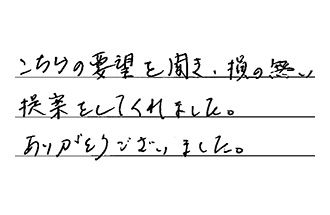 こちらの要望を聞き、損の無い
提案をしてくれました。
ありがとうございました。